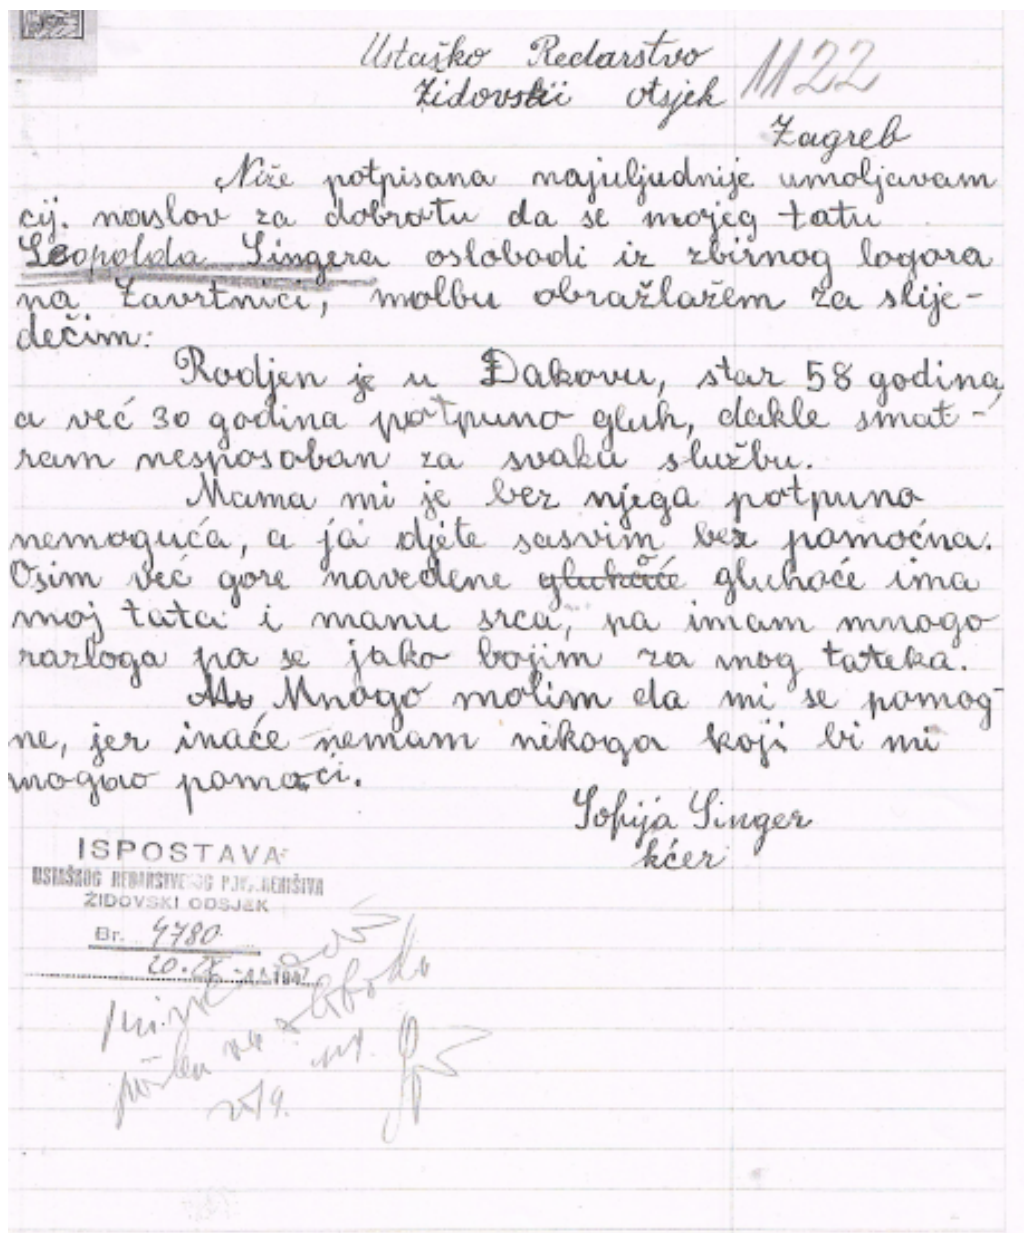 Ustaško Redarstvo
Židovskii otsjek 1122
Zagreb
Niže potpisana najuljudnije umoljavam
cij. naslov za dobrotu da se mojeg tatu
Leopolda Singera oslobodi iz zbirnog logora
na Zavrtnici, molbu obražlažem za slije-
dećim:
Rodjen je u Đakovu, star 58 godina,
a već 30 godina potpuno gluh, dakle smat-
ram nesposoban za svaku službu.
Mama mi je bez njega potpuno
nemoguća, a ja djete sasvim bez pomoćna.
Osim već gore navedene gluhoće ima
moj tata i manu srca, pa imam mnogo
razloga pa se jako bojim za mog tateka.
Mnogo molim da mi se pomog-
ne, jer inaće nemam nikoga koji bi mi
mogao pomoći.
Sofija Singer
kćer
ISPOSTAVA
ŽIDOVSKI ODSJEK
Br. 4780
20. IX